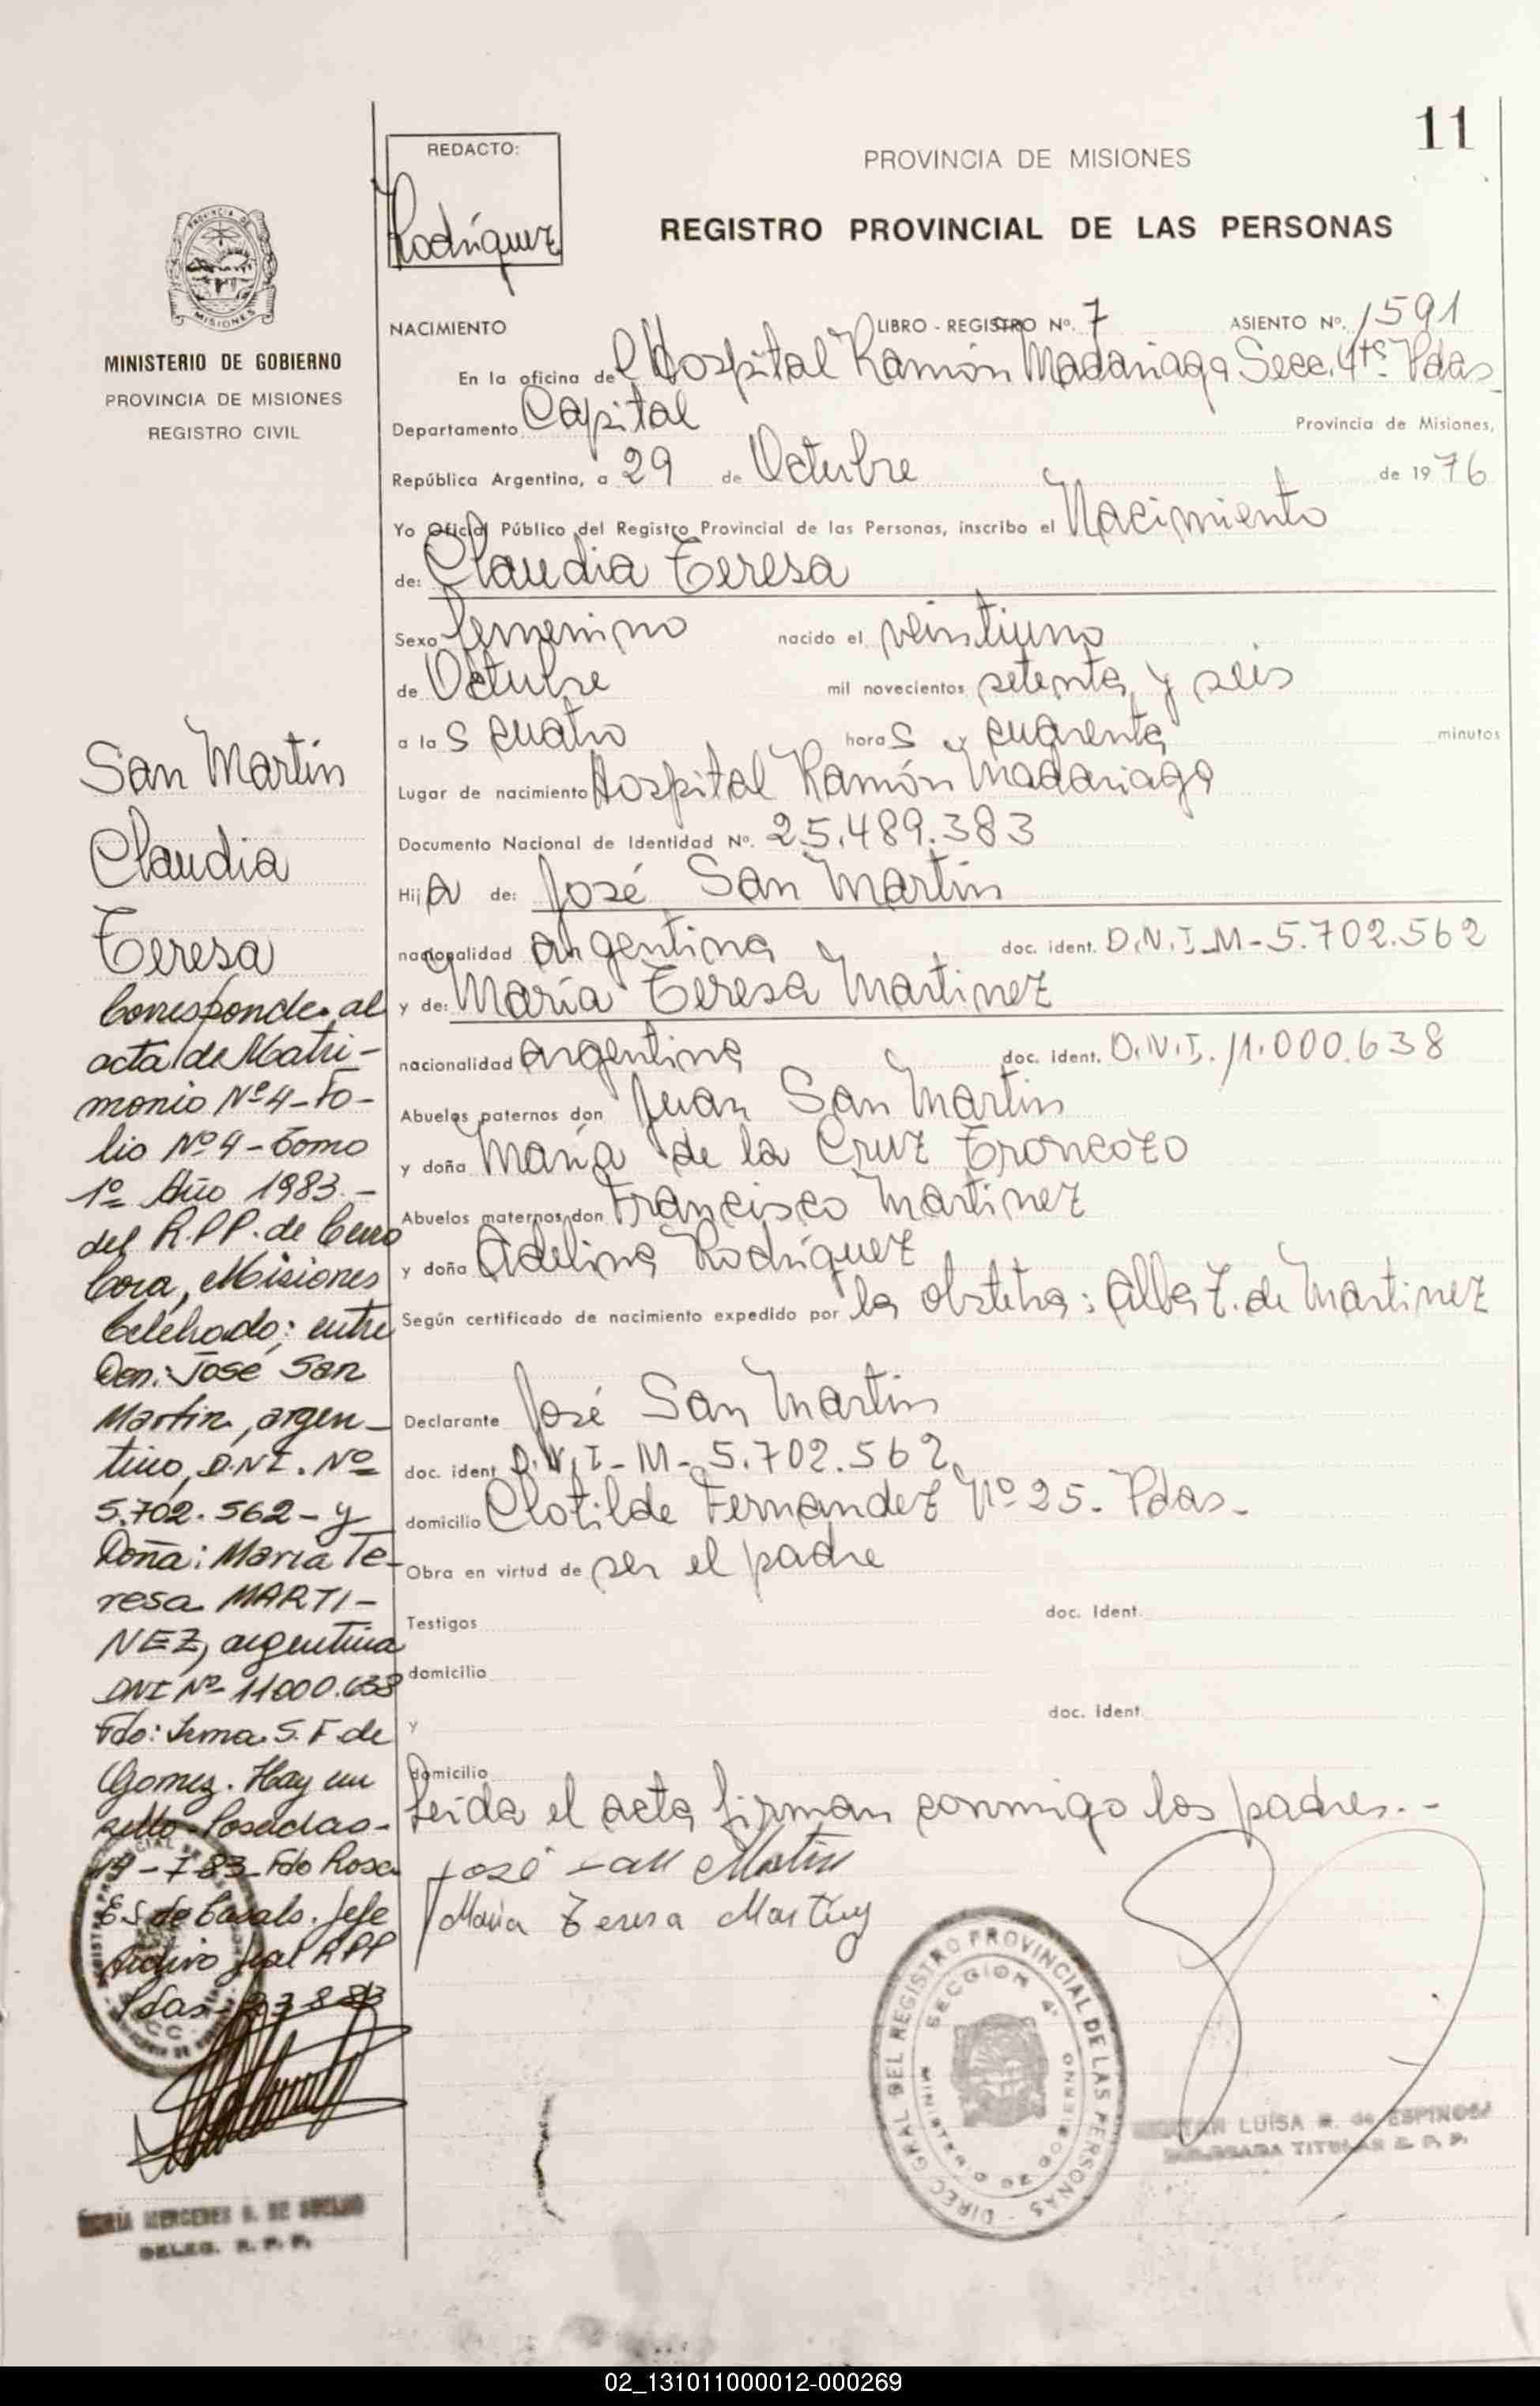 11
REDACTO:
Rodríguez
PROVINCIA DE MISIONES
REGISTRO PROVINCIAL DE LAS PERSONAS
PROVINCIA DE
MISIONES
MINISTERIO DE GOBIERNO
PROVINCIA DE MISIONES
REGISTRO CIVIL
NACIMIENTO LIBRO - REGISTRO Nº. 7 ASIENTO Nº. 1591
En la oficina de l Hospital Ramón Madariaga Secc. 4ta Pdas
Departamento Capital Provincia de Misiones,
República Argentina, a 29 de Octubre de 1976
Yo Oficial Público del Registro Provincial de las Personas, inscribo el Nacimiento
de: Claudia Teresa
Sexo femenino nacido el veintiuno
de Octubre mil novecientos setenta y seis
a la s cuatro hora s y cuarenta minutos
Lugar de nacimiento Hospital Ramón Madariaga
Documento Nacional de Identidad Nº. 25.489.383
Hij a de: José San Martin
nacionalidad argentina doc. ident. D.N.I. M-5.702.562
y de: María Teresa Martinez
nacionalidad argentina doc. ident. D.N.I. 11.000.638
Abuelos paternos don Juan San Martin
y doña María de la Cruz Troncozo
Abuelos maternos don Francisco Martinez
y doña Adelina Rodríguez
Según certificado de nacimiento expedido por la obstetra: Alba Z. de Martinez
Declarante José San Martin
doc. ident D.N.I-M-5.702.562
domicilio Clotilde Fernandez Nº 25- Pdas-
Obra en virtud de ser el padre
Testigos doc. Ident.
domicilio
y doc. ident
domicilio
Leida el acta firman conmigo los padres.-
José San Martin
Maria Teresa Martinez
San Martin
Claudia
Teresa
Corresponde al
acta de Matri-
monio Nº 4-Fo-
lio Nº 4-Tomo
1º Año 1983.-
del R.P.P. de Cerro
Cora, Misiones
Celebrado; entre
Don: José San
Martin, argen-
tino, D.N.I. Nº
5.702.562- y
Doña: María Te-
resa MARTI-
NEZ, argentina
DNI Nº 11000.638
Fdo: Irma S. F de
Gomez. Hay un
sello-Posadas-
19-7-83-Fdo Rosa
E S de Casals. Jefe
Archivo Gral RPP
Pdas-
DIREC. GRAL. DEL REGISTRO PROVINCIAL DE LAS PERSONAS
SECCION 4ª
MINISTERIO DE GOBIERNO
LUISA R. de ESPINOSA
DELEGADA TITULAR R. P. P.
MARÍA MERCEDES
DELEG. R. P. P.
02_131011000012-000269